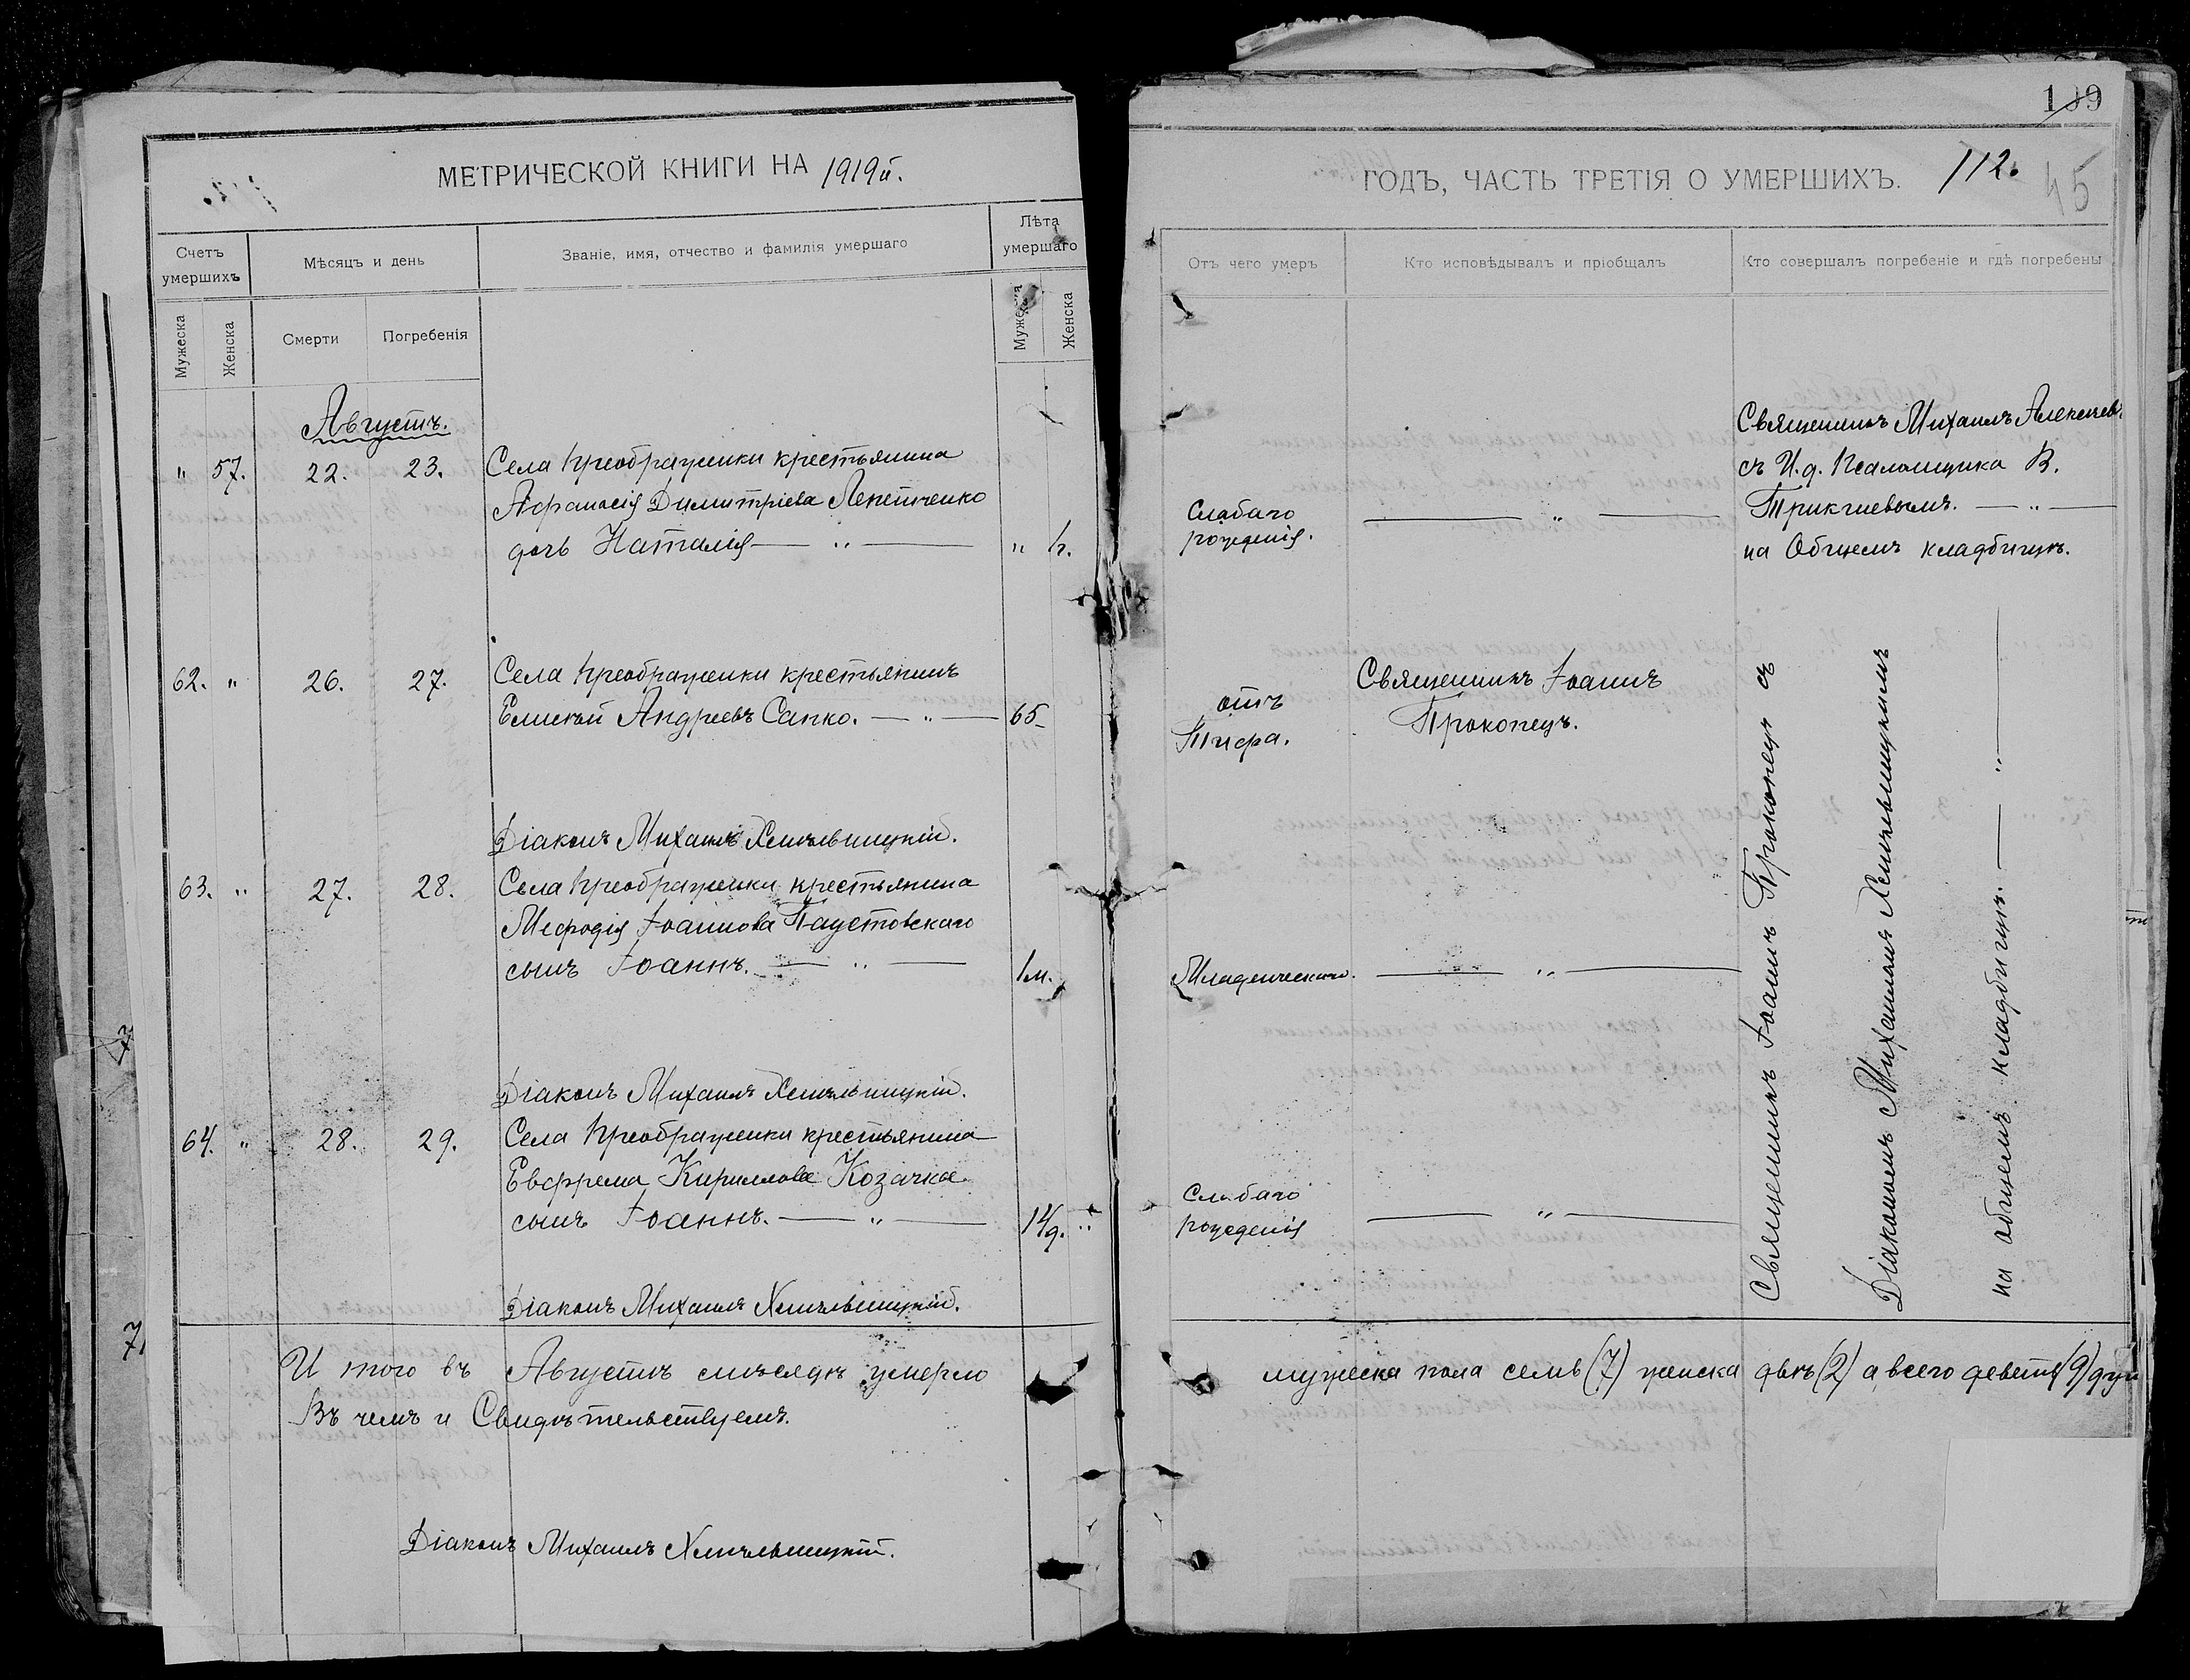 МЕТРИЧЕСКОЙ КНИГИ НА 1919й.
Счетъ умершихъ
Мѣсяцъ и день
Званіе, имя, отчество и фамилія умершаго
Лѣта умершаго
Мужеска
Женска
Смерти
Погребенія
Мужеска
Женска
Августъ.
" 57. 22. 23. Села Преображенки крестьянина
Афанасія Димитріева Лепетченко
дочь Наталія — " —
62. " 26. 27. Села Преображенки крестьянинъ
Елисей Андреевъ Сапко. — " — 65
Діаконъ Михаилъ Хмѣльницкій.
63. " 27. 28. Села Преображенки крестьянина
Мефодія Іоаннова Паустовскаго
сынъ Іоаннъ. — " — 1м.
Діаконъ Михаилъ Хмѣльницкій.
64. " 28. 29. Села Преображенки крестьянина
Евфрема Кириллова Козачка
сынъ Іоаннъ. — " — 14д. "
Діаконъ Михаилъ Хмѣльницкій.
И того въ Августѣ мѣсяцѣ умерло
Въ чемъ и Свидѣтельствуемъ.
Діаконъ Михаилъ Хмѣльницкій.
109
ГОДЪ, ЧАСТЬ ТРЕТІЯ О УМЕРШИХЪ. 112. 45
Отъ чего умеръ
Кто исповѣдывалъ и пріобщалъ
Кто совершалъ погребеніе и гдѣ погребены
Слабаго
рожденія.
— " —
Священникъ Михаилъ Алексѣев
съ И.д. Псаломщика В.
на Общемъ кладбищѣ.
отъ
Тифа.
Священникъ Іоаннъ
Прокопецъ.
Младенческаго. — " —
Слабаго
рожденія — " —
Священникъ Іоаннъ Прокопецъ съ
Діакономъ Михаиломъ Хмѣльницкимъ
на общемъ кладбищѣ. — " —
мужеска пола семь (7) женска двѣ (2) а всего девять (9) душ